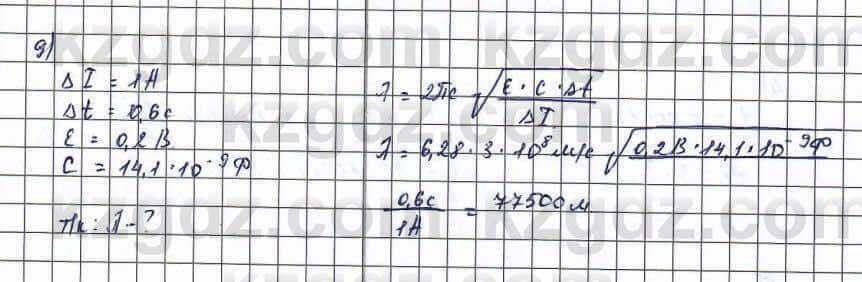 9)
ΔI = 1А
Δt = 0,6с
ε = 0,2В
C = 14,1·10⁻⁹ф
Тк: λ-?
λ = 2πc √(ε·C·Δt / ΔI)
λ = 6,28·3·10⁸м/с √(0,2В·14,1·10⁻⁹ф
0,6с / 1А = 77500м
kzgdz.com kzgdz.com
kzgdz.com kzgdz.com
kzgdz.com kzgdz.com